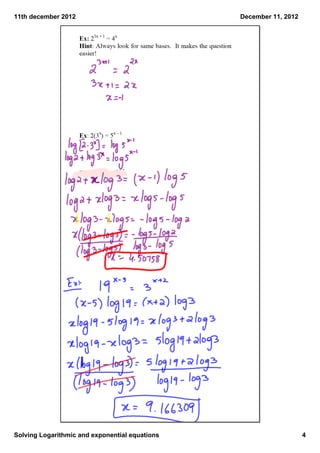 11th december 2012
December 11, 2012
Ex: 2^(3x + 1) = 4^x
Hint: Always look for same bases. It makes the question
easier!
2^(3x+1) = 2^(2x)
3x+1 = 2x
x=-1
Ex: 2(3^x) = 5^(x – 1)
log[2·3^x] = log 5^(x-1)
log2 + log 3^x = log5^(x-1)
log2 + x log 3 = (x-1) log 5
log2 + xlog3 = xlog5 - log5
xlog3 - xlog5 = -log5 - log2
x(log3-log5) = -log5-log2
(log3-log5) log3-log5
x = 4.50758
Ex: 19^(x-5) = 3^(x+2)
(x-5) log19 = (x+2) log3
xlog19 - 5log19 = xlog3 + 2log3
xlog19 - xlog3 = 5log19 + 2log3
x(log19-log3) = 5log19 + 2log3
(log19-log3) log19 - log3
x = 9.166309
Solving Logarithmic and exponential equations
4